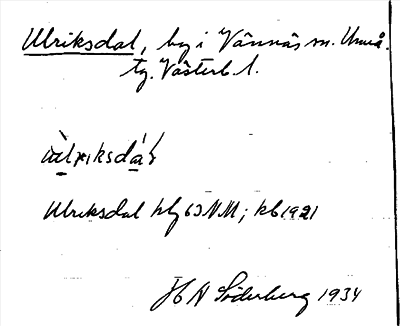 Ulriksdal, by i Vännäs sn. Umeå
tg. Västerb. l.
Ulriksdal blg 63 NM; kb 1921
H N Söderberg 1934